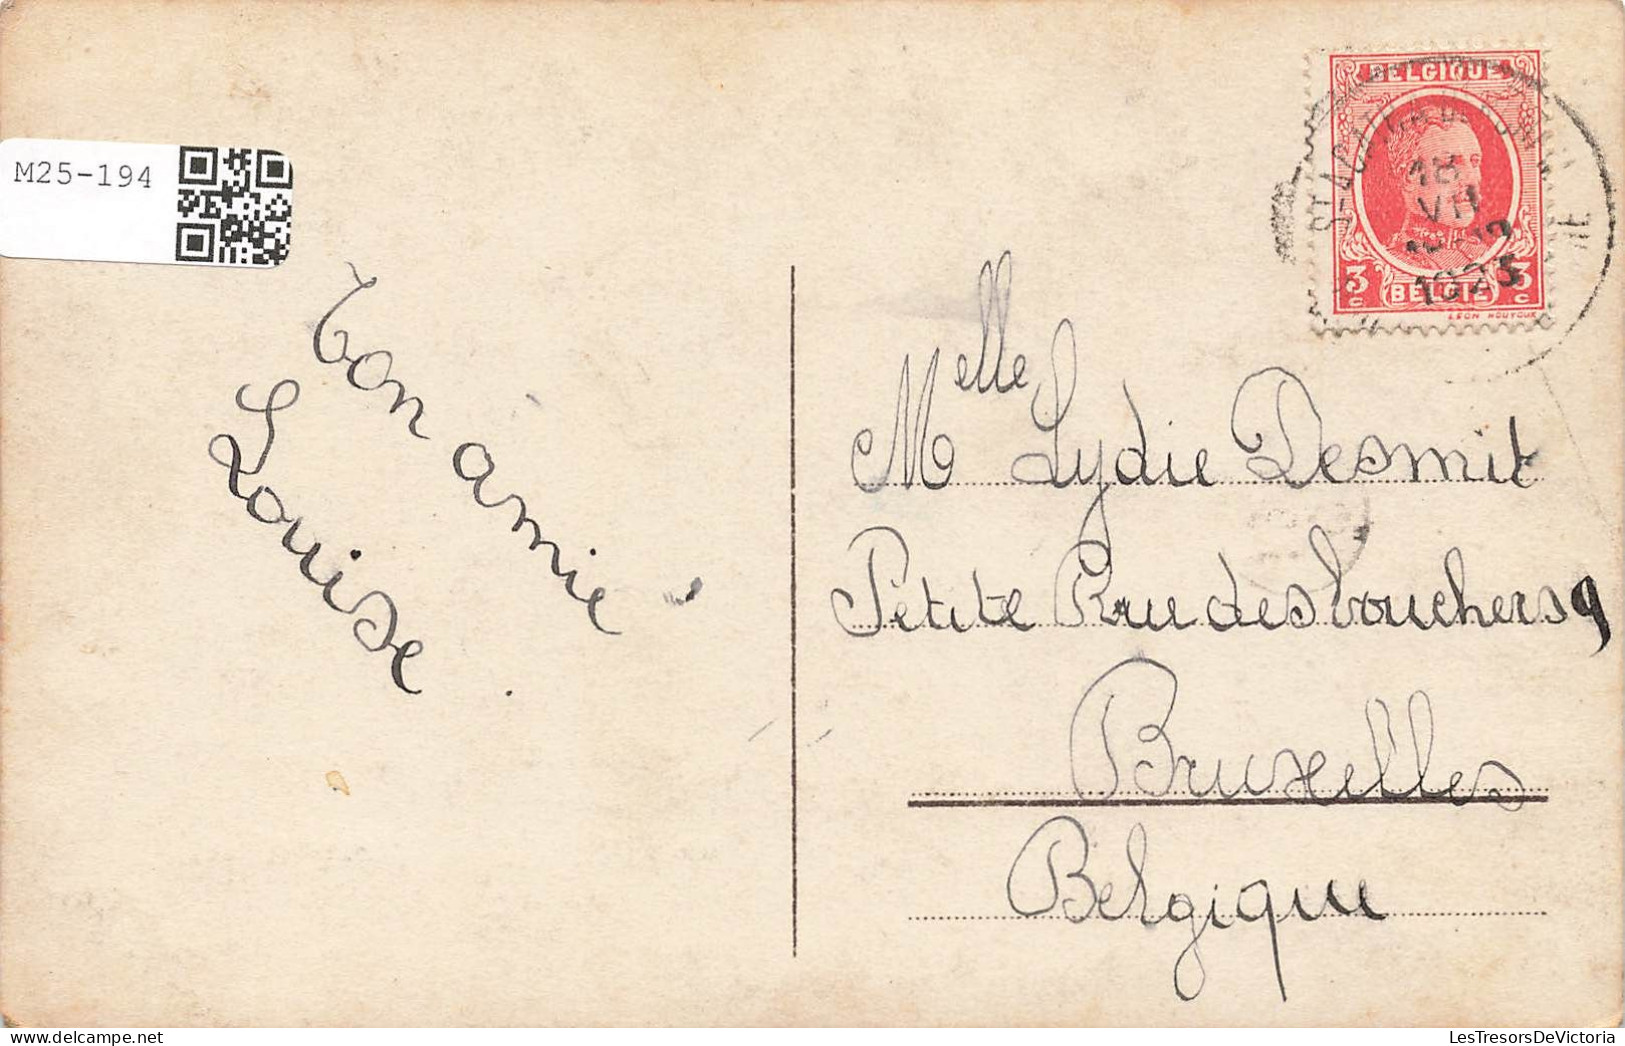 M25-194
BELGIQUE
18
VII
1923
3 c
3 c
BELGIË
LEON HOUYOUX
Ton amie
Louise
Melle Lydie Desmit
Petite Rue des bouchers 9
Bruxelles
Belgique
LesTresorsDeVictoria